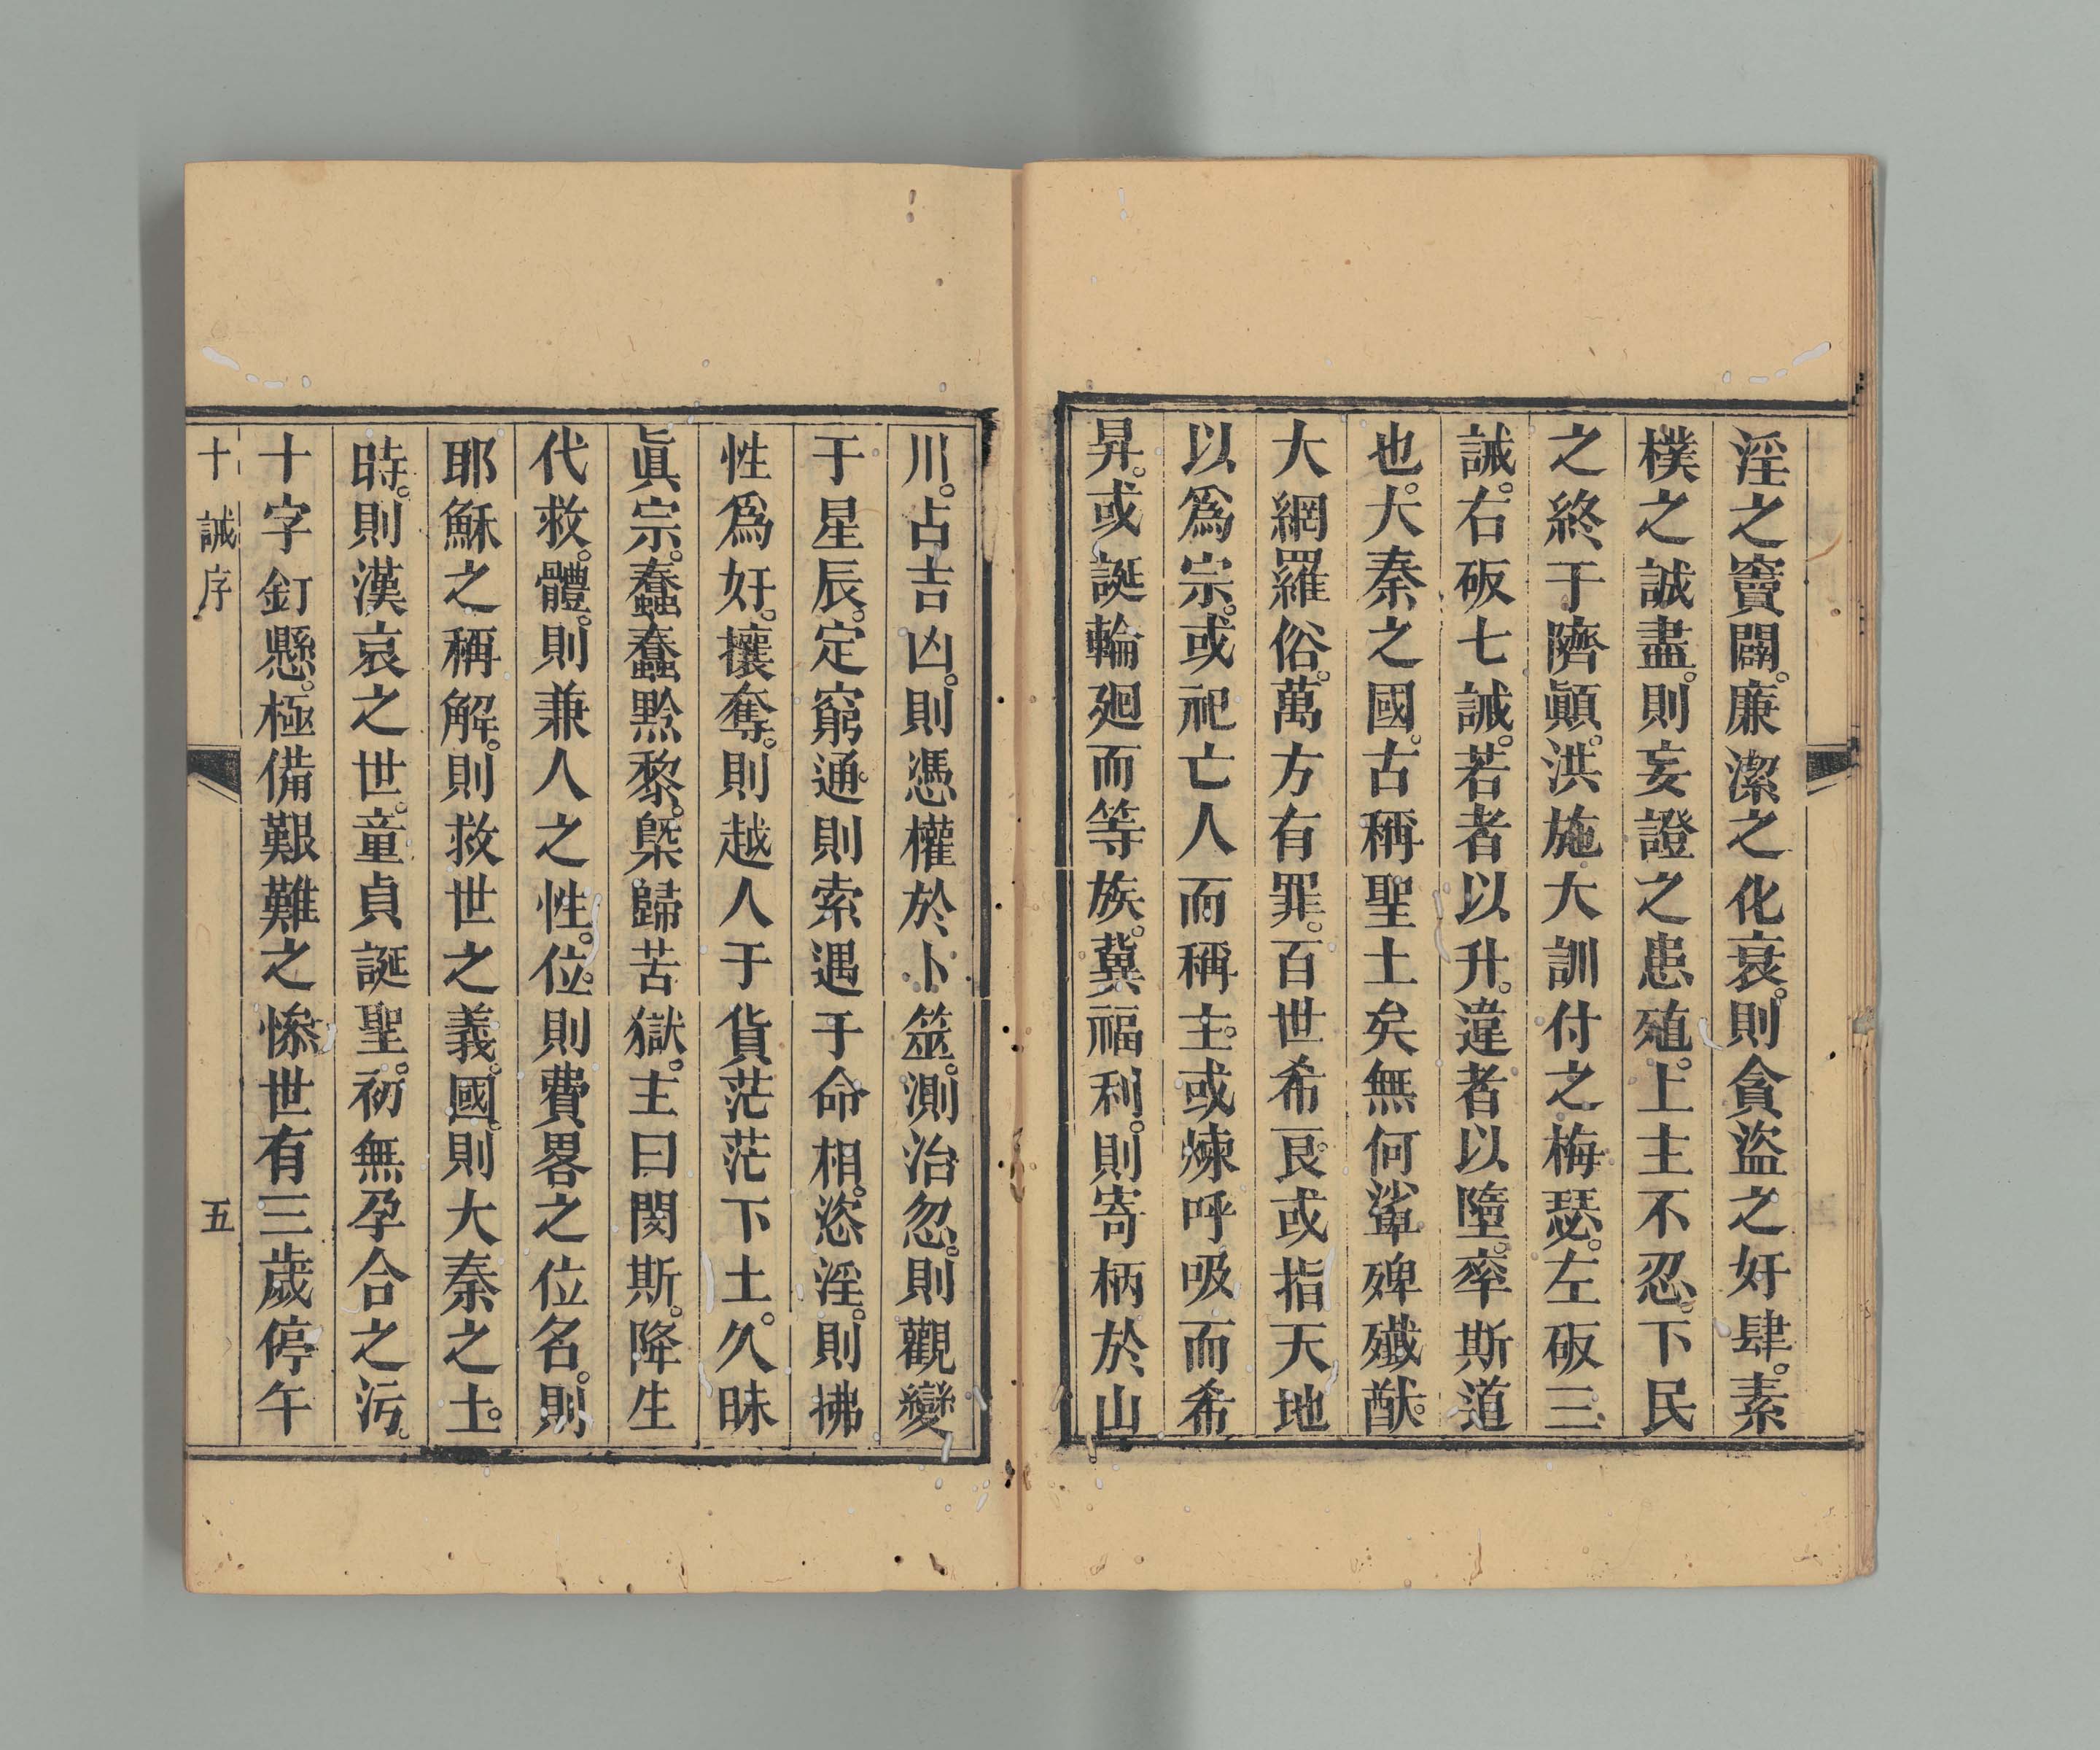 淫之竇闢。廉潔之化衰。則貪盜之奸肆。素
樸之誠盡。則妄證之患殖。上主不忍。下民
之終于隮顚。洪施大訓付之梅瑟。左砅三
誡。右砅七誡。若者以升。違者以墮。率斯道
也。大秦之國。古稱聖土矣無何鯗殫殲猷。
大網羅俗。萬方有罪。百世希良。或指天地
以爲宗。或祀亡人而稱主。或煉呼吸而希
昇。或誕輪廻而等族。冀福利。則寄柄於山
川。占吉凶。則憑權於卜筮。測治忽。則觀變
于星辰。定窮通。則索遇于命相。恣淫。則拂
性爲奸。攘奪。則越人于貨茫茫下土。久昧
眞宗。蠢蠢黔黎。槩歸苦獄。主曰閔斯。降生
代救。體。則兼人之性。位。則費畧之位名。則
耶穌之稱解。則救世之義。國。則大秦之土。
時。則漢哀之世。童貞誕聖。初無孕合之污。
十字釘懸。極備艱難之慘世有三歲停午
十誡序 五